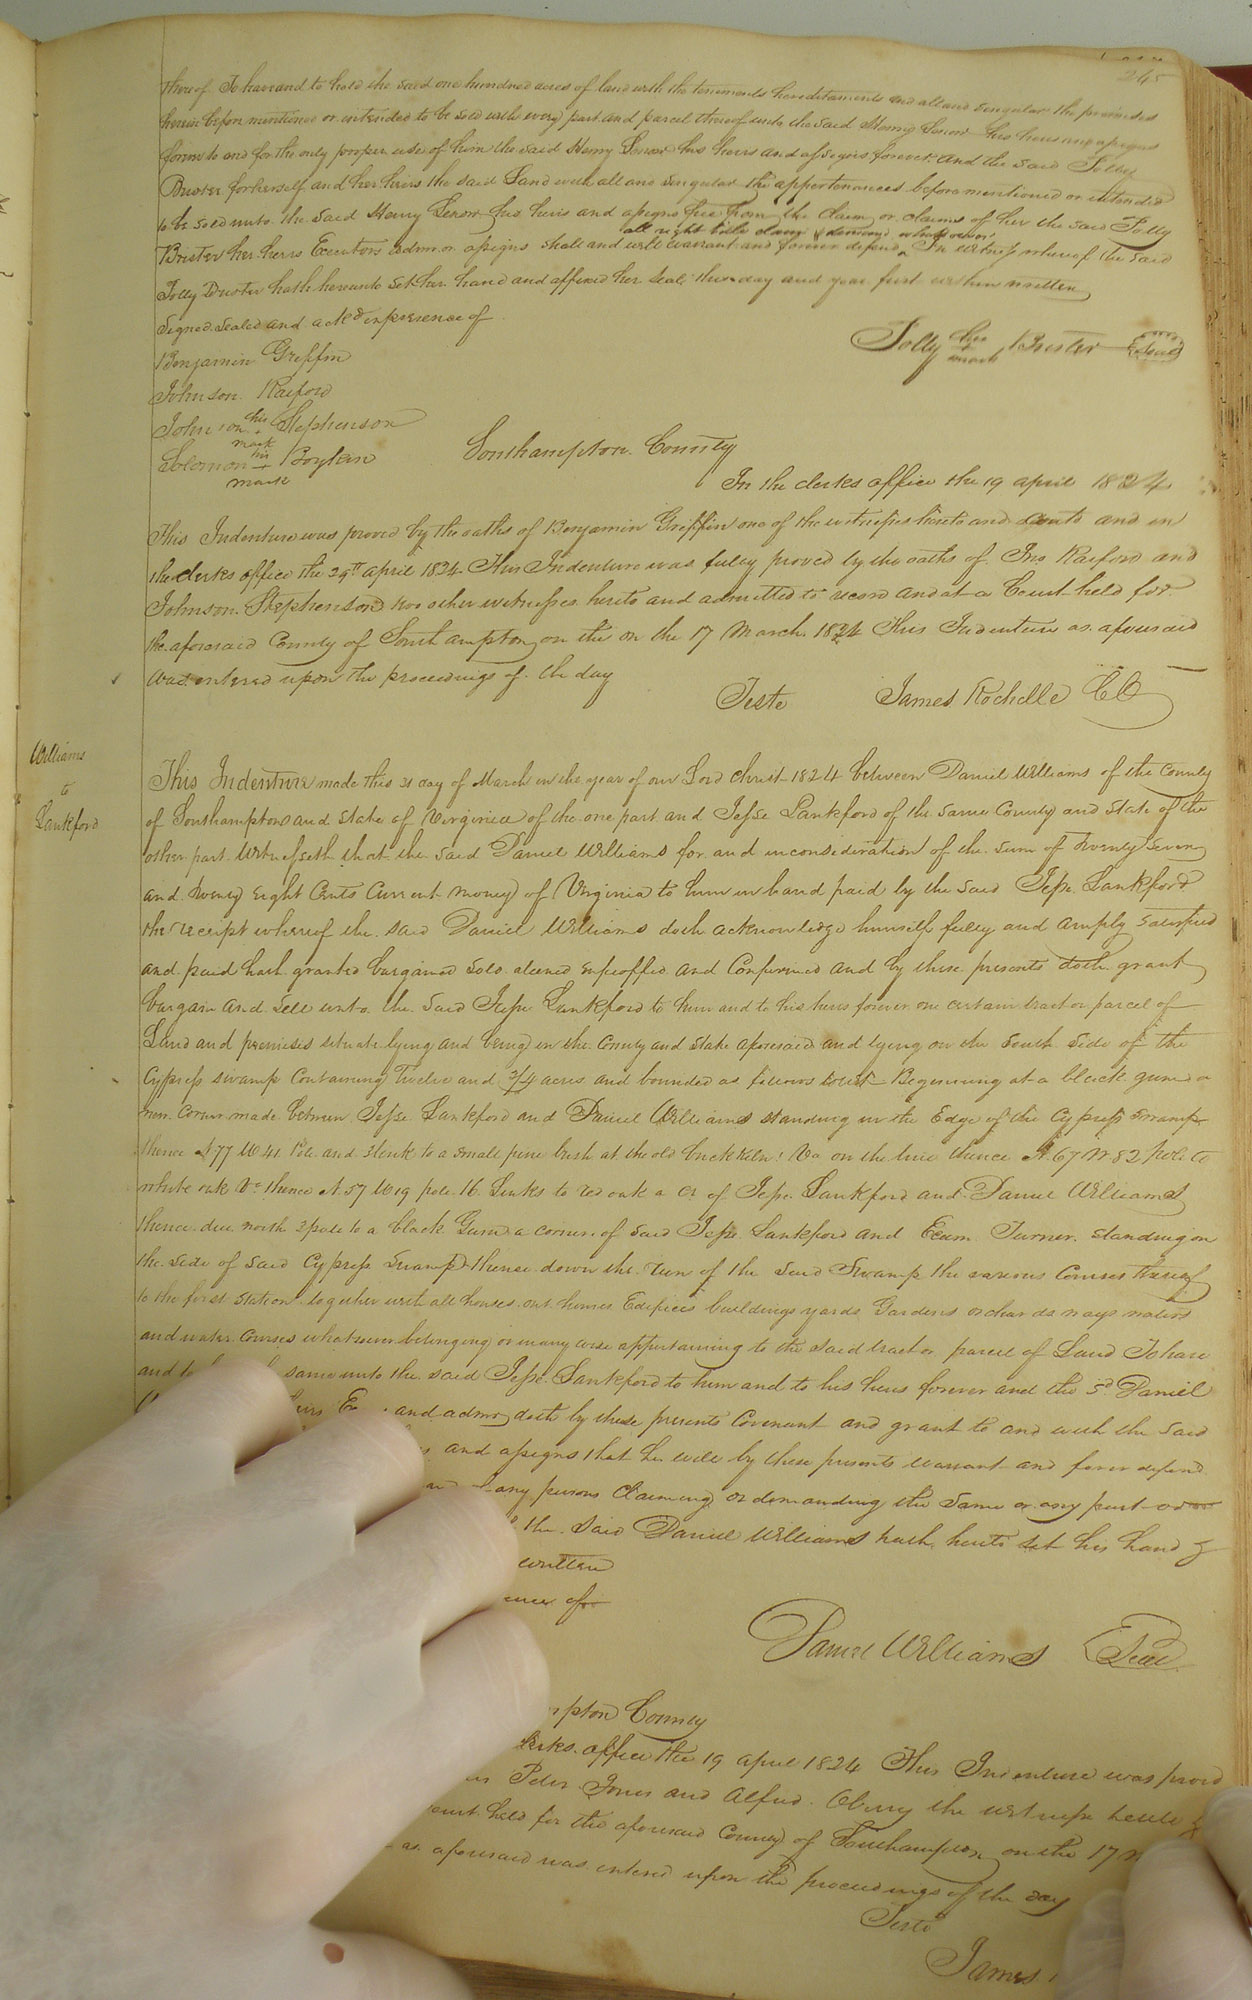 245
thereof To have and to hold the said one hundred acres of land with the tenements hereditaments and all and singular the premises
herein before mentioned or intended to be sold with every part and parcel thereof unto the said Henry his heirs and assigns
forever to and for the only proper use of him the said Henry his heirs and assigns forever and the said Tolley
Brister for herself and her heirs the said Land with all and singular the appertenences before mentioned or intended
to be sold unto the said Henry his heirs and assigns free from the claim or claims of her the said Tolly
all right title claim & demand whatsoever
Brister her heirs Executors admr or assigns shall and will warrant and forever defend In witness whereof the said
Tolly Brister hath hereunto set her hand and affixed her seal the day and year first within written
Signed sealed and ackd in presence of
Tolly her + mark Brister Seal
Benjamin Griffin
Johnson Raiford
Johnson his + mark Stephenson
Solomon his + mark Boykin
Southampton County
In the clerks office the 19 april 1824
This Indenture was proved by the oaths of Benjamin Griffin one of the witnesses hereto and and in
the clerks office the 29th april 1824 This Indenture was fully proved by the oaths of Jno Raiford and
Johnson Stephenson two other witnesses hereto and admitted to record and at a Court held for
the aforesaid County of Southampton on the on the 17 March 1824 This Indenture as aforesaid
was entered upon the proceedings of the day
Teste James Rochelle CC
Williams
to
Lankford
This Indenture made this 31 day of March in the year of our Lord Christ 1824 between Daniel Williams of the County
of Southampton and State of Virginia of the one part and Jesse Lankford of the same County and State of the
other part Witnesseth that the said Daniel Williams for and in consideration of the sum of Twenty Seven
and Twenty Eight Cents Current money of Virginia to him in hand paid by the said Jesse Lankford
the receipt whereof the said Daniel Williams doth acknowledge himself fully and amply satisfied
and paid hath granted bargained sold aliened enfeoffed and Confirmed and by these presents doth grant
bargain and sell unto the said Jesse Lankford to him and to his heirs forever one certain tract or parcel of
Land and premises situate lying and being in the County and State aforesaid and lying on the South side of the
Cypress swamp Containing Twelve and 3/4 acres and bounded as follows towit Beginning at a black gum a
new corner made between Jesse Lankford and Daniel Williams standing in the Edge of the Cypress Swamp
thence S 77 W 41 Pole and 3 link to a small pine bush at the old brick kiln on the line thence N 67 W 82 pole to
white oak thence N 57 W 19 pole 16 Links to red oak a Cr of Jesse Lankford and Daniel Williams
thence due north 3 pole to a black Gum a corner of said Jesse Lankford and Exum Turner standing on
the side of said Cypress Swamp thense down the run of the said Swamp the various Courses thereof
to the first station together with all houses out houses Edifices buildings yards Gardens orchards ways waters
and water courses whatsoever belonging or in any wise appertaining to the said tract or parcel of Land To have
and to same unto the said Jesse Lankford to him and to his heirs forever and the sd Daniel
heirs and admr doth by these presents Covenant and grant to and with the said
and assigns that he will by these presents warrant and forever defend
any persons Claiming or demanding the same or any part
the said Daniel Williams hath hereto set his hand &
written
of
Daniel Williams Seal
County
office the 19 april 1824 This Indenture was proved
Peter Jones and Alfred Oberry the witness hereto &
held for the aforesaid County of Southampton on the 17
as aforesaid was entered upon the proceedings of the day
Teste
James